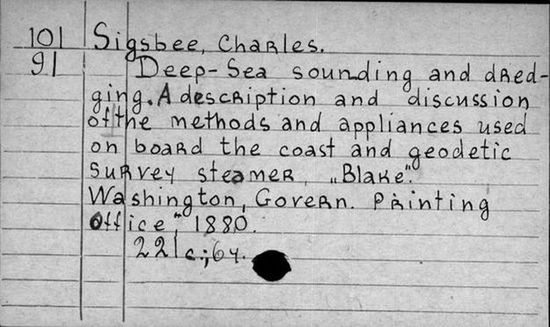 101 Sigsbee, Charles.
91 Deep-Sea sounding and dred-
ging. A description and discussion
of the methods and appliances used
on board the coast and geodetic
Survey steamer „Blake".
Washington, Govern. Printing
Office", 1880.
221 c.; 64.